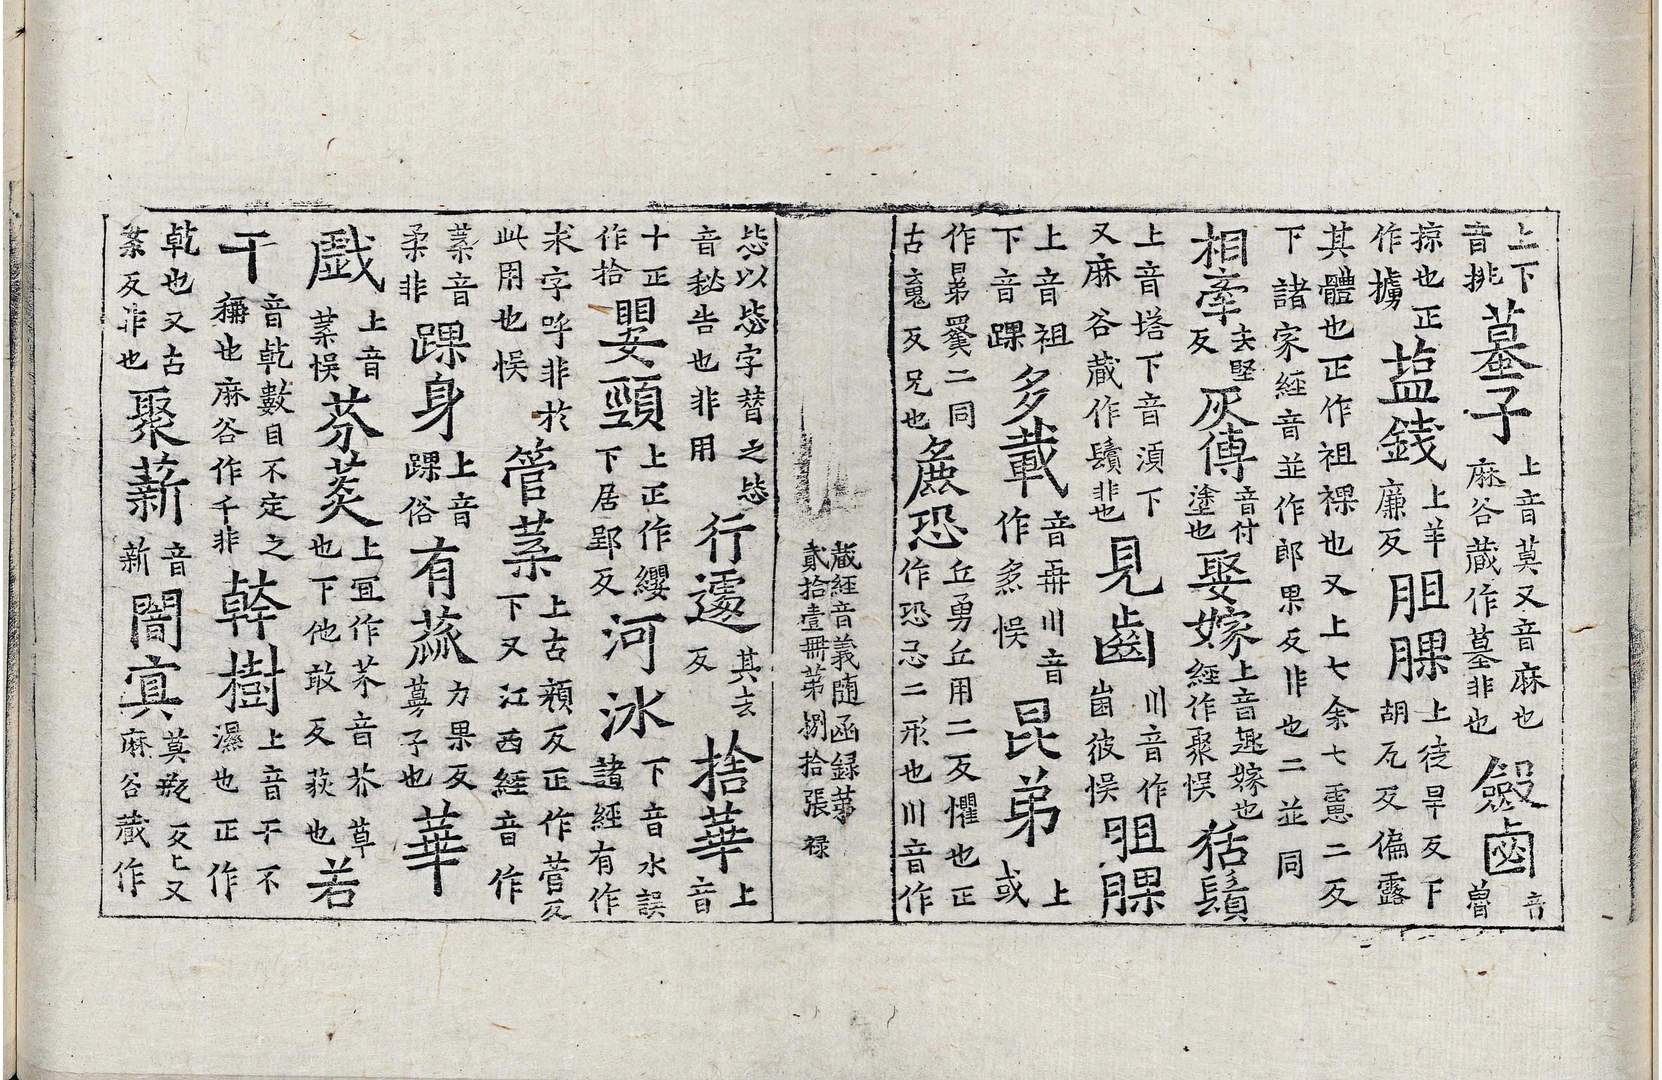 上下音挑蟇子上音莫又音麻也麻谷藏作墓非也鹵音魯
掠也正作擄塩錢上羊廉反胆腂上徒旱反下胡瓦反偏露
其體也正作袒裸也又上七余七慮二反下諸家經音並作郎果反非也二並同
相牽去堅反灰傅音付塗也娶嫁上音趣嫁也經作聚悮𤝗鬚
上音塔下音湏下又麻谷藏作鬚非也見齒川音作齒彼悮胆腂
上音袒下音踝多載音再川音作悮昆弟上或
作二同古反兄也麁恐丘勇丘用二反懼也正作恐忌二形也川音作
藏經音義随函録苐貳拾壹冊苐捌拾張 禄
字替之音愁告也非用行遽其去反捨華上音
十正作拾瞾頸上正作纓下居郢反河氷下音水誤諸經有作
求字呼非於此用也悮管葉上古頑反正作菅反下又江西經音作
葉音柔非踝身上音踝俗有蓏力果反子也華
戲上音葉悮芬菼上宜作芥音芥草也下他敢反荻也若
干音乾數目不定之稱也麻谷作千非幹樹上音干不濕也正作
乹也又古案反非也聚薪音新闇㝠莫瓶反上又麻谷藏作